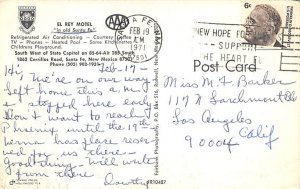 EL REY MOTEL
"In old Santa Fe"
AAA
Refrigerated Air Conditioning — Courtesy Coffee
TV — Phones — Heated Pool — Some Kitchenettes
Childrens Playground.
South West of State Capitol on 85-64-Alt 285 South
1862 Cerrillos Road, Santa Fe, New Mexico 87501
Phone (505) 982-1931
Feb. 19
Hi; We're on our way
Left home this a.m.
stopped here early
Don't want to reach
Phoenix until the 19th
Verna has place reserved
for us there -
Goodly driving, will write
from there.
SANTA FE, N
FEB 19
PM
1971
87501
NEW HOPE FOR
SUPPORT
THE HEART FU
6c
Post Card
Miss M. F. Barker
Larchmont Bl
Los Angeles
Calif
90004